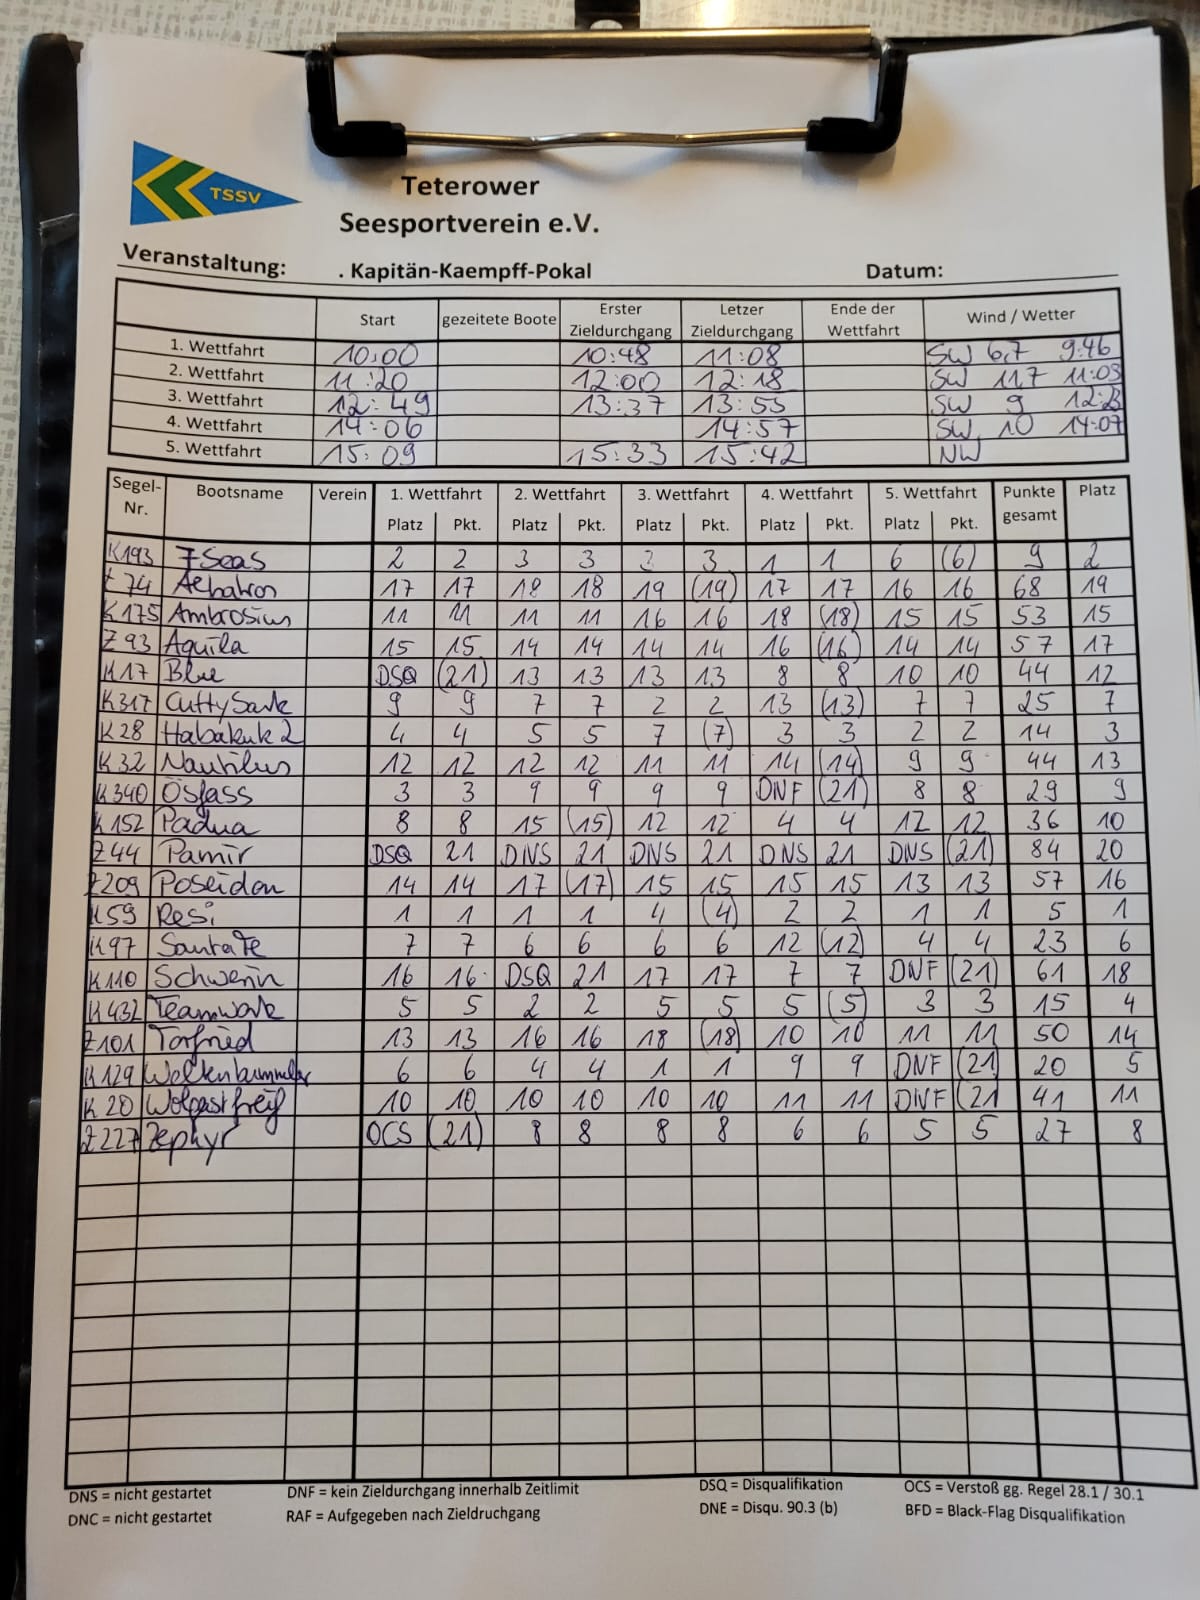 TSSV
Teterower
Seesportverein e.V.
Veranstaltung: . Kapitän-Kaempff-Pokal Datum:
Start gezeitete Boote Erster Zieldurchgang Letzer Zieldurchgang Ende der Wettfahrt Wind / Wetter
1. Wettfahrt 10:00 10:48 11:08 SW 6,7 9:46
2. Wettfahrt 11:20 12:00 12:18 SW 11,7 11:03
3. Wettfahrt 12:49 13:37 13:55 SW 9 12:23
4. Wettfahrt 14:06 14:57 SW 10 14:07
5. Wettfahrt 15:09 15:33 15:42 NW
Segel-Nr. Bootsname Verein 1. Wettfahrt 2. Wettfahrt 3. Wettfahrt 4. Wettfahrt 5. Wettfahrt Punkte gesamt Platz
Platz Pkt. Platz Pkt. Platz Pkt. Platz Pkt. Platz Pkt.
K193 7Seas 2 2 3 3 3 3 1 1 6 (6) 9 2
Z 74 Albatros 17 17 18 18 19 (19) 17 17 16 16 68 19
K 175 Ambrosius 11 11 11 11 16 16 18 (18) 15 15 53 15
Z 93 Aquila 15 15 14 14 14 14 16 (16) 14 14 57 17
K17 Blue DSQ (21) 13 13 13 13 8 8 10 10 44 12
K317 Cutty Sark 9 9 7 7 2 2 13 (13) 7 7 25 7
K 28 Habakuk 2 4 4 5 5 7 (7) 3 3 2 2 14 3
K 32 Nautilus 12 12 12 12 11 11 14 (14) 9 9 44 13
K 340 Ösfass 3 3 9 9 9 9 DNF (21) 8 8 29 9
K 152 Padua 8 8 15 (15) 12 12 4 4 12 12 36 10
Z44 Pamir DSQ 21 DNS 21 DNS 21 DNS 21 DNS (21) 84 20
Z209 Poseidon 14 14 17 (17) 15 15 15 15 13 13 57 16
K59 Resi 1 1 1 1 4 (4) 2 2 1 1 5 1
K97 Santa Fe 7 7 6 6 6 6 12 (12) 4 4 23 6
K110 Schwerin 16 16 DSQ 21 17 17 7 7 DNF (21) 61 18
K432 Teamwork 5 5 2 2 5 5 5 (5) 3 3 15 4
Z101 Torfried 13 13 16 16 18 (18) 10 10 11 11 50 14
K129 Wolkenbummler 6 6 4 4 1 1 9 9 DNF (21) 20 5
K 20 Wolgast freif 10 10 10 10 10 10 11 11 DNF (21 41 11
Z 227 Zephyr OCS (21) 8 8 8 8 6 6 5 5 27 8
DNS = nicht gestartet DNF = kein Zieldurchgang innerhalb Zeitlimit DSQ = Disqualifikation OCS = Verstoß gg. Regel 28.1 / 30.1
DNC = nicht gestartet RAF = Aufgegeben nach Zieldruchgang DNE = Disqu. 90.3 (b) BFD = Black-Flag Disqualifikation